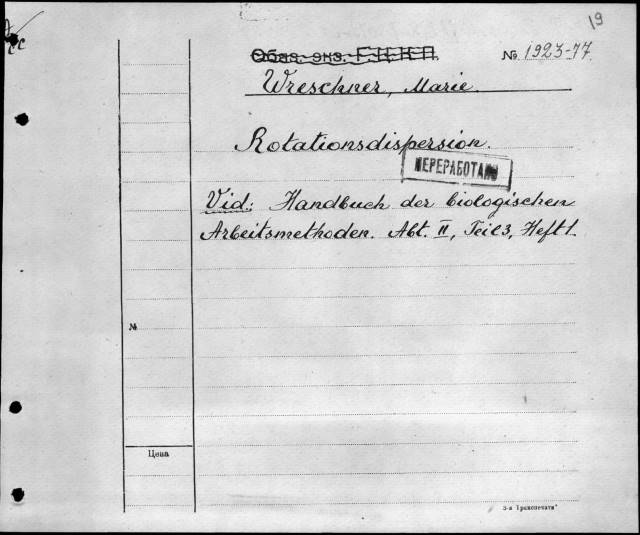 19
Обяз. экз. Г.Ц.К.П.
№ 1923-77
Wreschner, Marie.
Rotationsdispersion.
ПЕРЕРАБОТАНО
Vid.: Handbuch der biologischen
Arbeitsmethoden. Abt. II, Teil 3, Heft 1.
№
Цена
3-я „Транспечать“